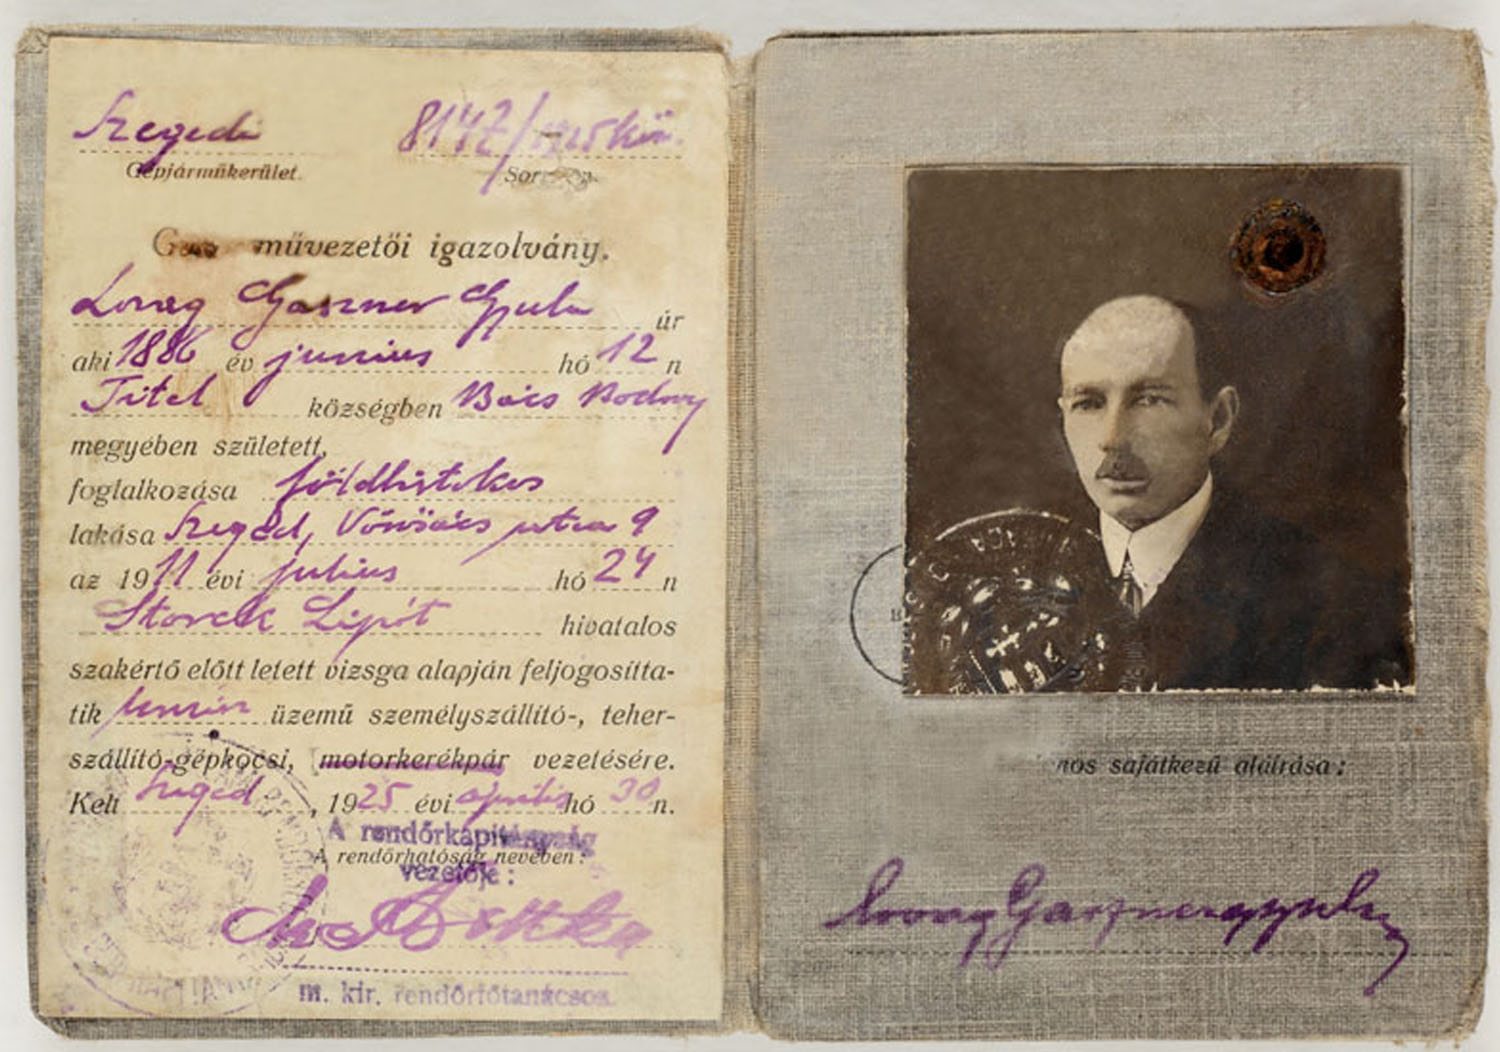 Szegedi 8147/1925 kig.
Gépjárműkerület.
művezetői igazolvány.
Lovag Gaszner Gyula úr
aki 1886 év junius hó 12 n
Titel községben Bács Bodrog
megyében született,
foglalkozása földbirtokos
lakása Szeged, utca 9
az 1911 évi julius hó 24 n
Storek Lipót hivatalos
szakértő előtt letett vizsga alapján feljogosítta-
tik benzin üzemű személyszállító-, teher-
szállító-gépkocsi, motorkerékpár vezetésére.
Kelt Szeged, 1925 évi április hó 30 n.
A rendőrkapitányság
A rendőrhatóság nevében:
vezetője:
m. kir. rendőrfőtanácsos.
sajátkezű aláírása:
lovag Gaszner Gyula